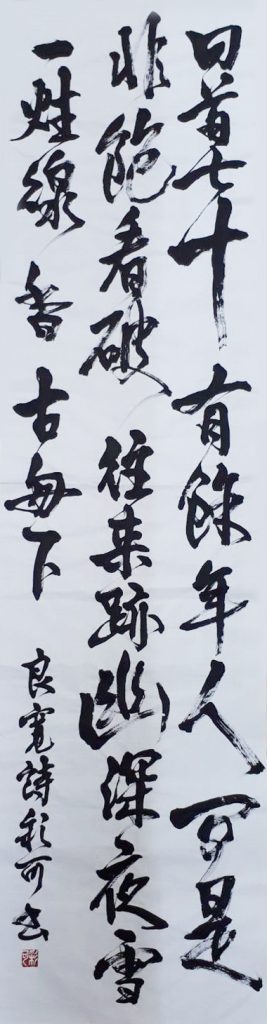 回首七十有餘年人間是
非飽看破往来跡幽深夜雪
一炷線香古窓下
良寛詩彩可書